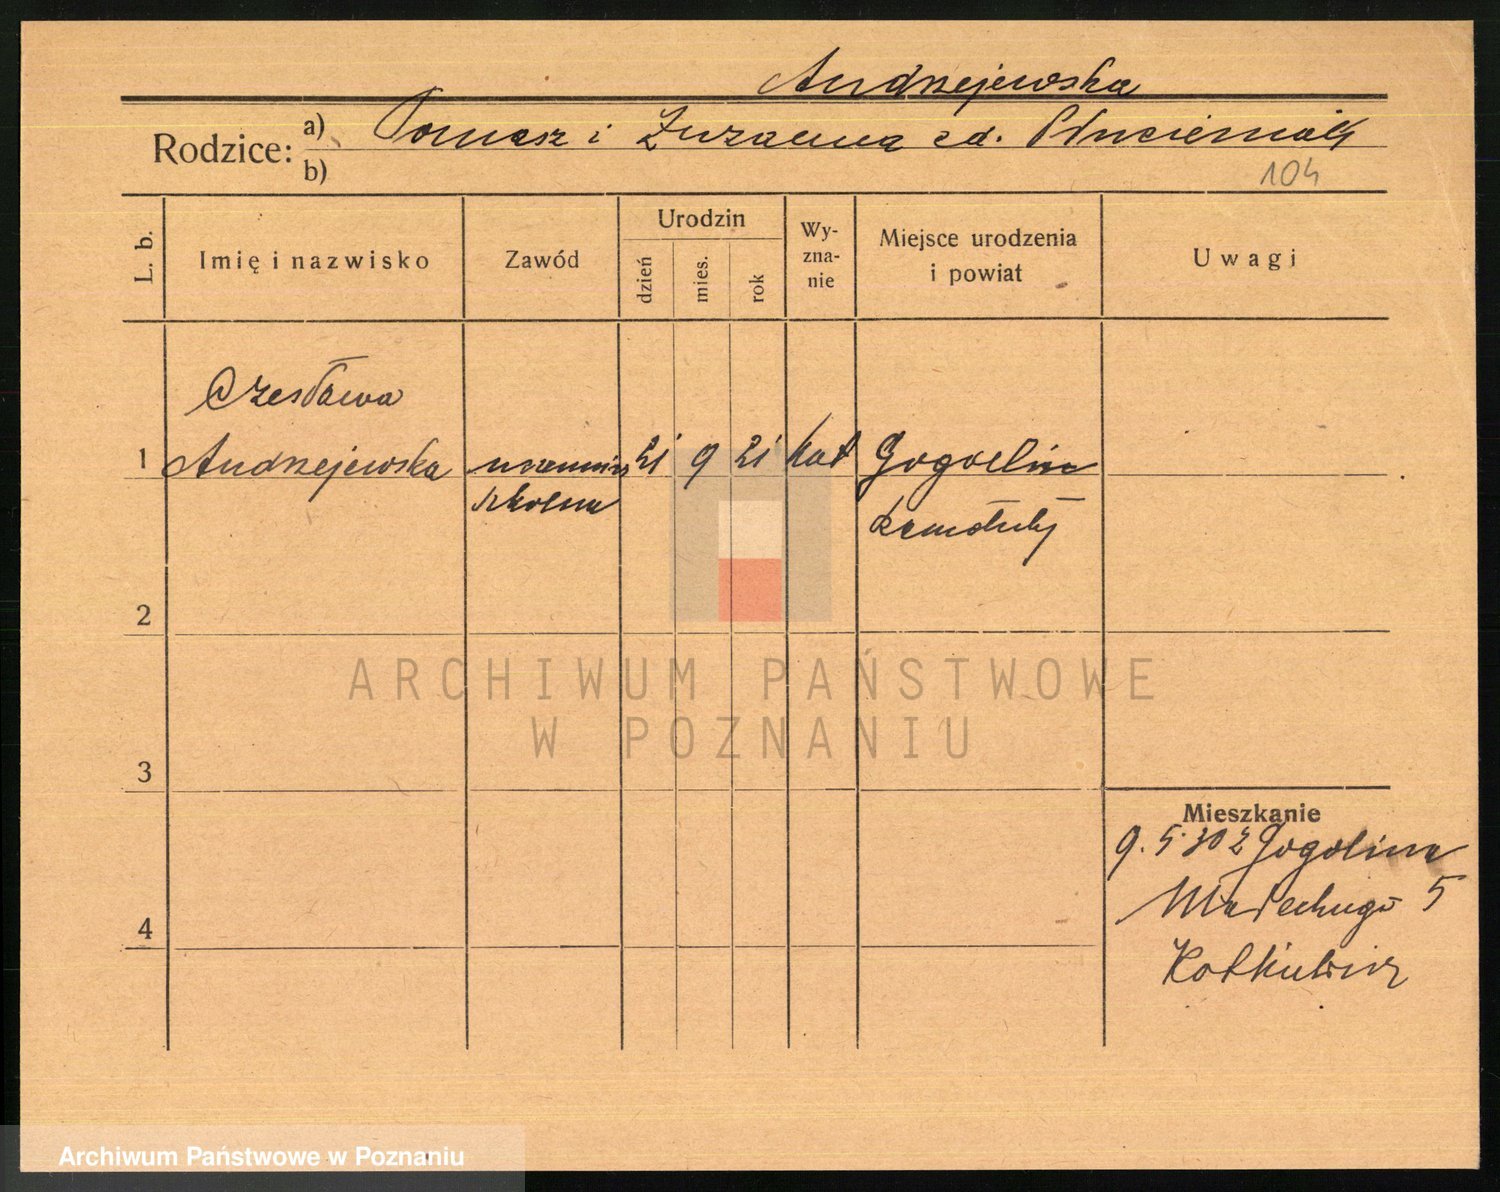 Andrzejewska
Rodzice: a) Tomasz i Zuzanna zd.
b)
104
L. b.
Imię i nazwisko
Zawód
Urodzin
dzień
mies.
rok
Wy-
zna-
nie
Miejsce urodzenia
i powiat
Uwagi
Czesława
1 Andrzejewska uczennica 21 9 21 kat
szkolna
2
3
4
Mieszkanie
9. 5. 30 z
5
ARCHIWUM PAŃSTWOWE
W POZNANIU
Archiwum Państwowe w Poznaniu